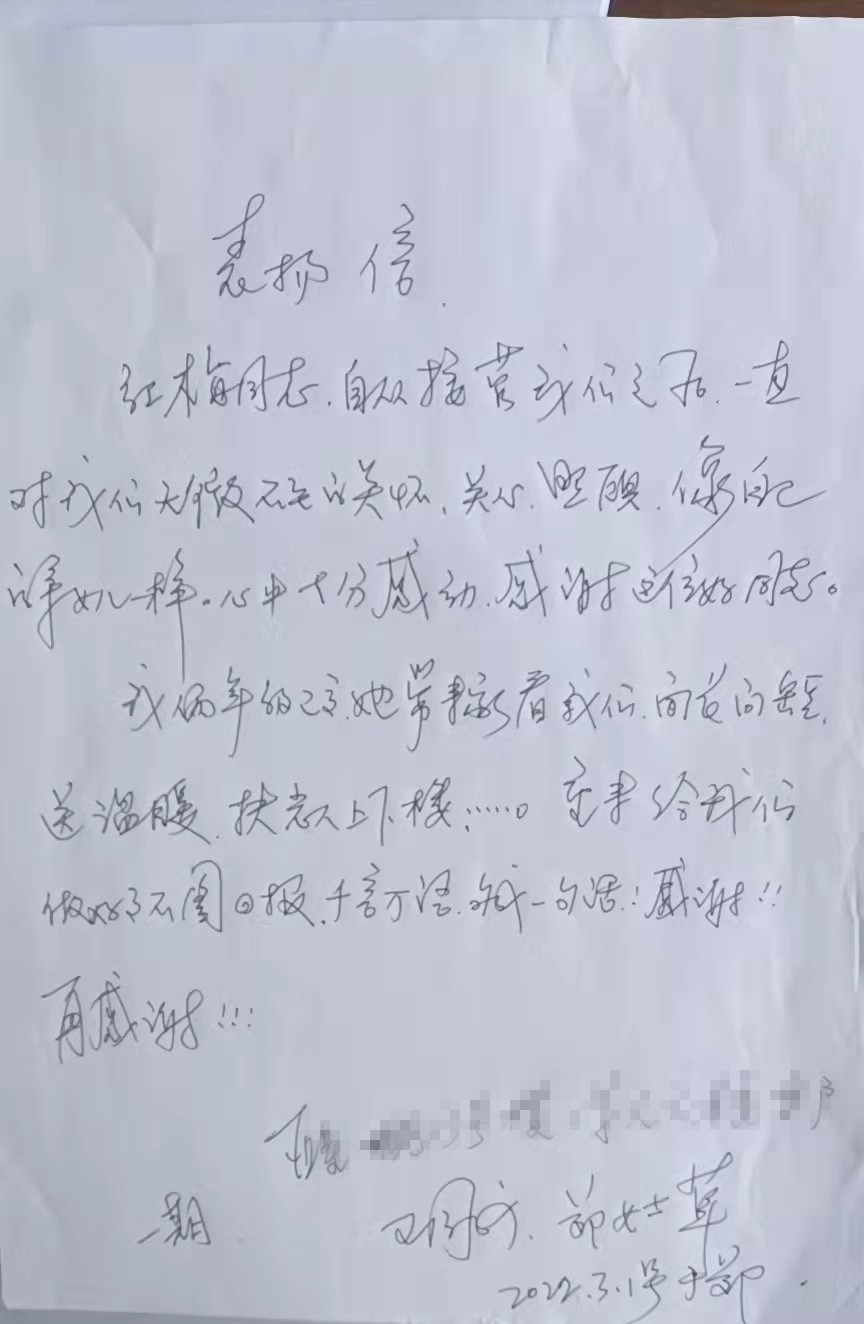 表扬信.
红梅同志.自从接管我们之后.一直
对我们无微不至的关怀、关心.照顾.像自己
的女儿一样。心中十分感动.感谢这位好同志。
我俩年纪 她常来看我们.问长问短.
送温暖.扶老人上下楼:……。 给我们
做好了不图回报.千言万语.一句话:感谢!!
再感谢!!!
户
一期 郑女士草
2022.3.1号于郑.